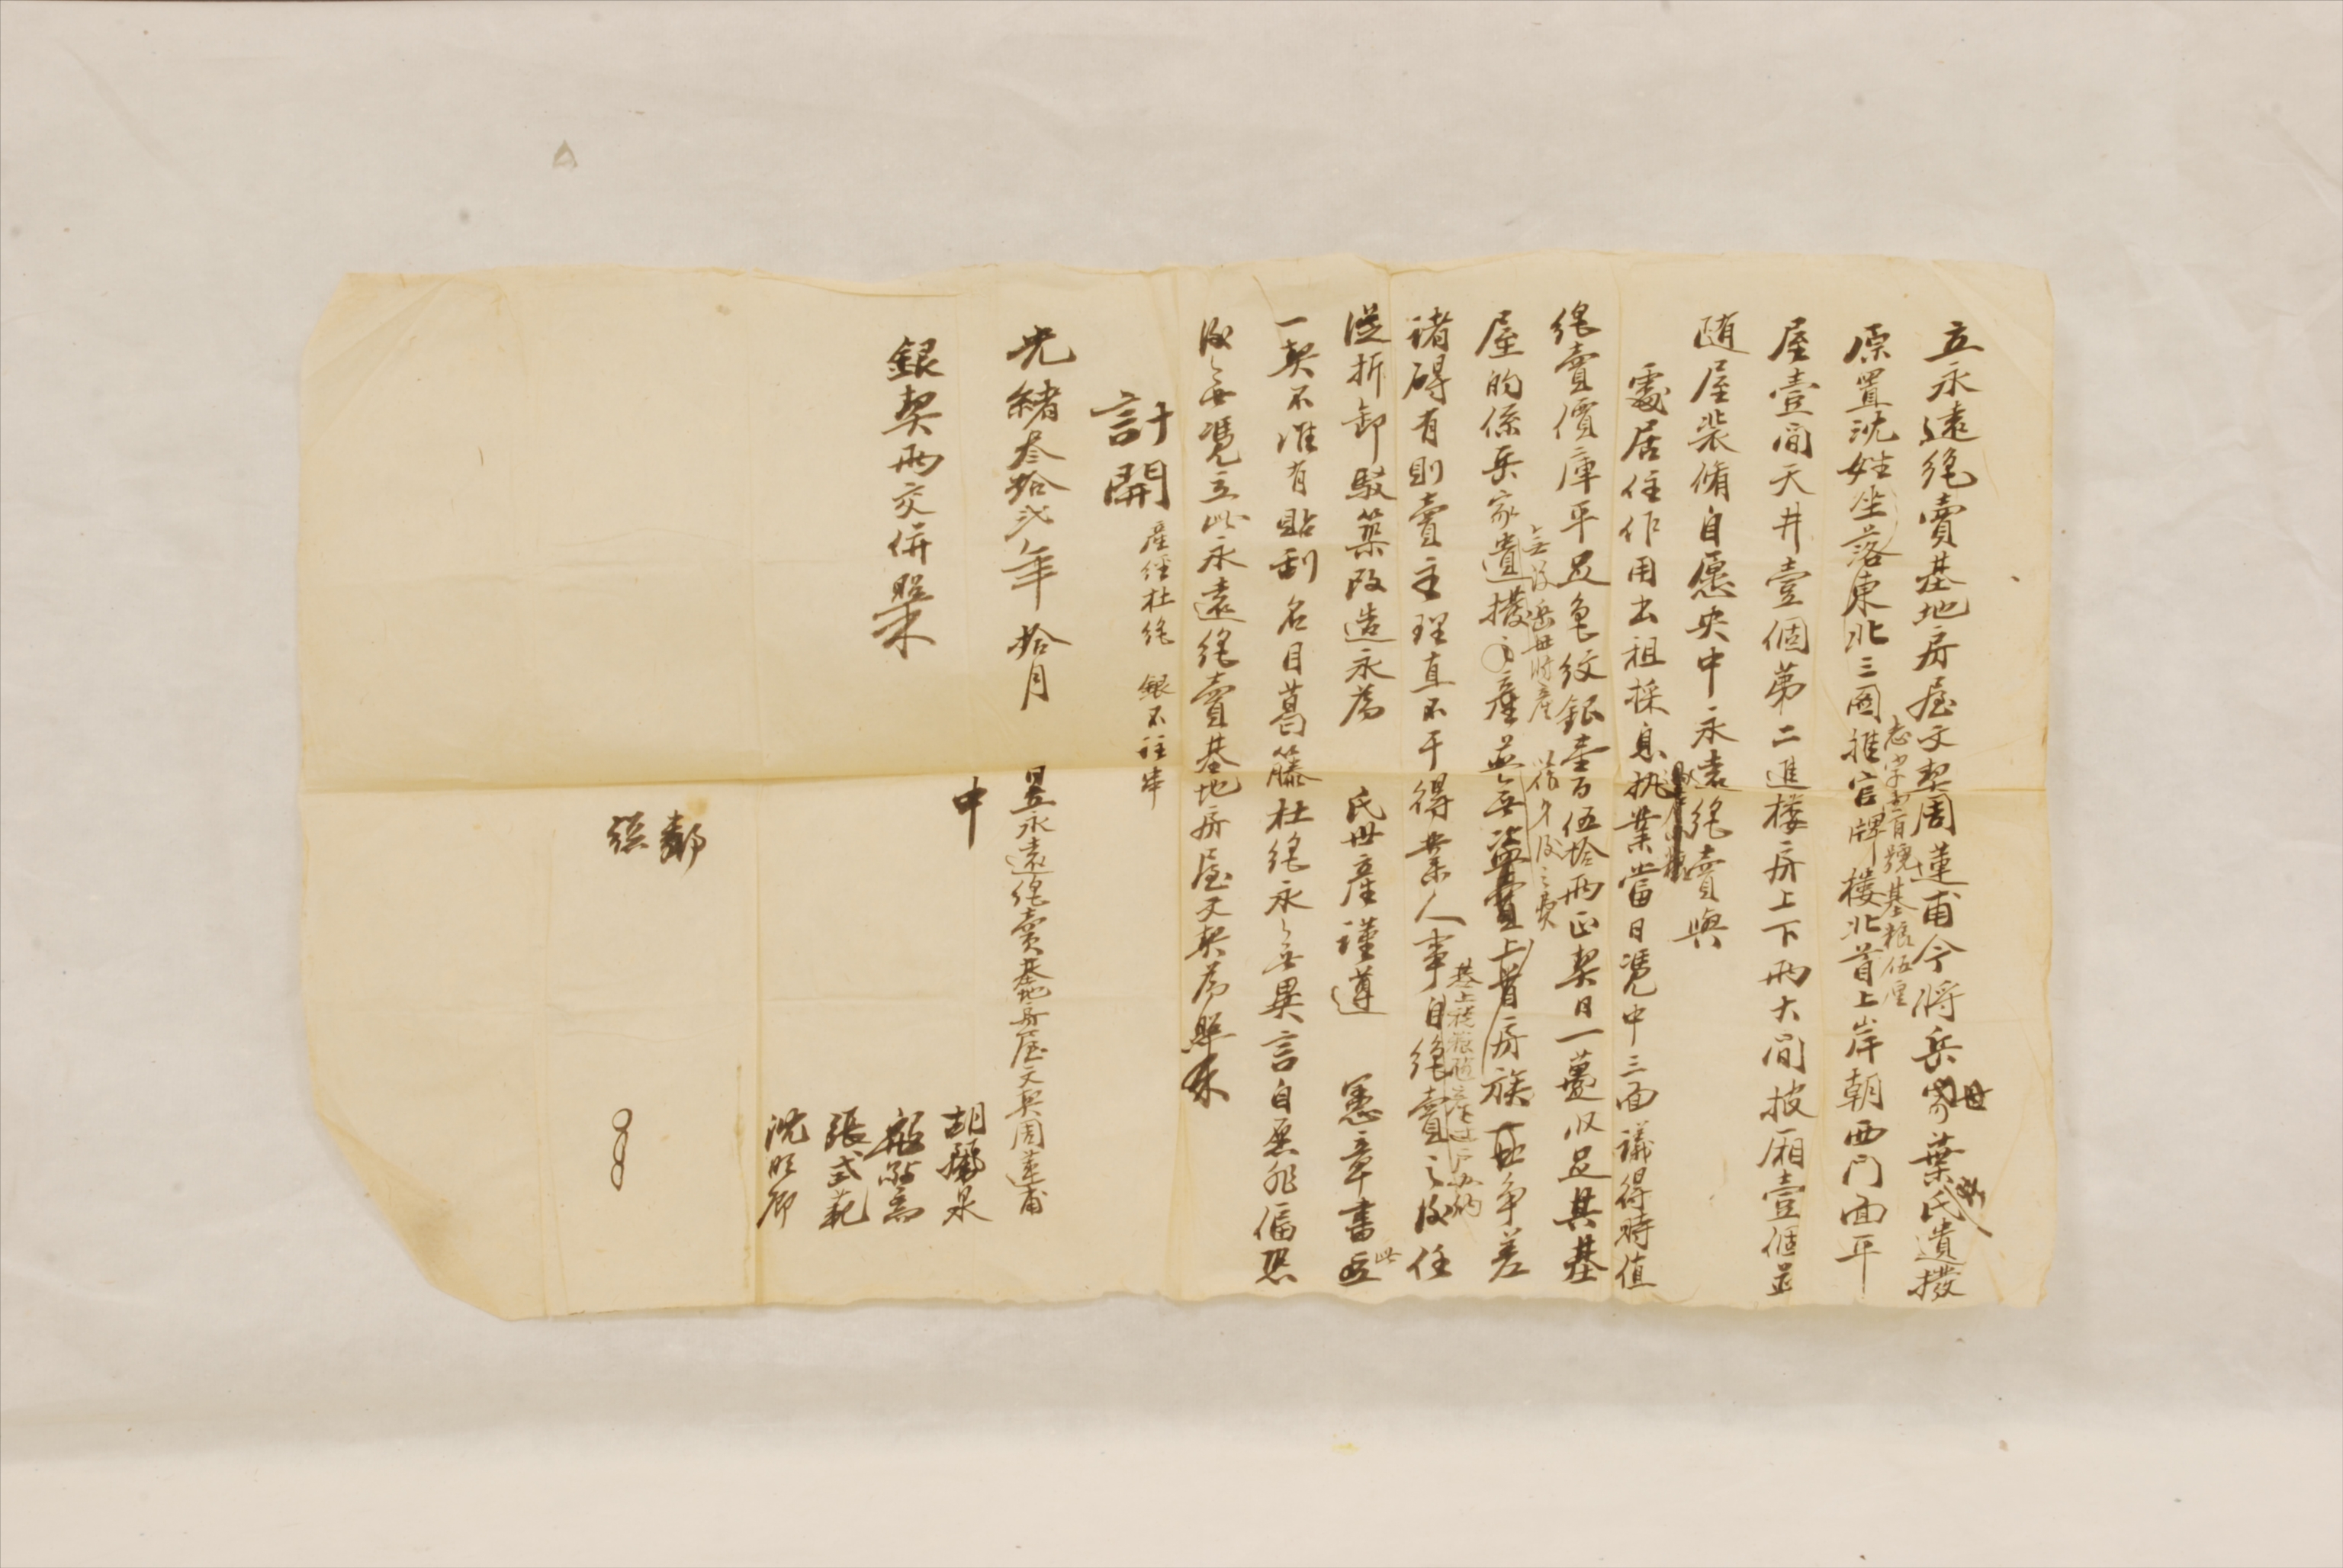 立永遠絕賣基地房屋文契周蓮甫今將岳家母葉氏遺撥
忘字壹百號基糧伍厘
原置沈姓坐落東北三圖推官牌樓北首上岸朝西門面平
屋壹間天井壹個第二進樓房上下兩大間披廂壹個並
隨屋裝脩自愿央中永遠絕賣與
處居住作用出租採息執業當日憑中三面議得時值
絕賣價庫平足色紋銀壹百伍拾兩正契日一薹收足其基
屋的係岳家遺撥產並無盜賣上首房族爭差
諸碍有則賣主理直不干得業人事自絕賣之後任
從拆卸毀築改造永為 氏世產謹遵 憲章書立此
一契不准有貼刮名目葛籐杜絕永無異言自愿非偪恐
後無憑立此永遠絕賣基地房屋文契為照
計開 產經杜絕 銀不註串
光緒叁拾弍年拾月 日立永遠絕賣基地房屋文契周蓮甫
中 胡 泉
張式範
沈 卿
銀契兩交併照
鄰
張